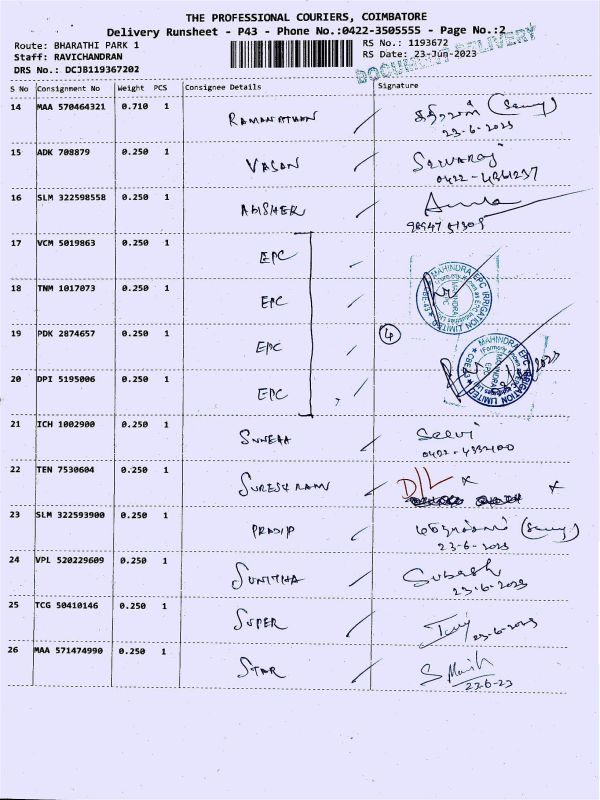 THE PROFESSIONAL COURIERS, COIMBATORE
Delivery Runsheet - P43 - Phone No.:0422-3505555 - Page No.:2
Route: BHARATHI PARK 1 RS No.: 1193672
Staff: RAVICHANDRAN RS Date: 23-Jun-2023
DRS No.: DCJB119367202
DOCUMENT DELIVERY
S No Consignment No Weight PCS Consignee Details Signature
14 MAA 570464321 0.710 1 RAMANATHAN
23-6-2023
15 ADK 708879 0.250 1 VASAN
0422-4361237
16 SLM 322598558 0.250 1 ABISHEK
98947 51305
17 VCM 5019863 0.250 1 EPC
18 TNM 1017073 0.250 1 EPC
MAHINDRA EPC IRRIGATION LIMITED
19 PDK 2874657 0.250 1 EPC 4
MAHINDRA EPC IRRIGATION LIMITED
20 DPI 5195006 0.250 1 EPC
21 ICH 1002900 0.250 1 SUNEHA Selvi
22 TEN 7530604 0.250 1 SURESH RAM D/L
23 SLM 322593900 0.250 1 PRADIP
23-6-2023
24 VPL 520229609 0.250 1 SUNITHA Subash
23-6-2023
25 TCG 50410146 0.250 1 SUPER
23-6-2023
26 MAA 571474990 0.250 1 STAR
23-6-23